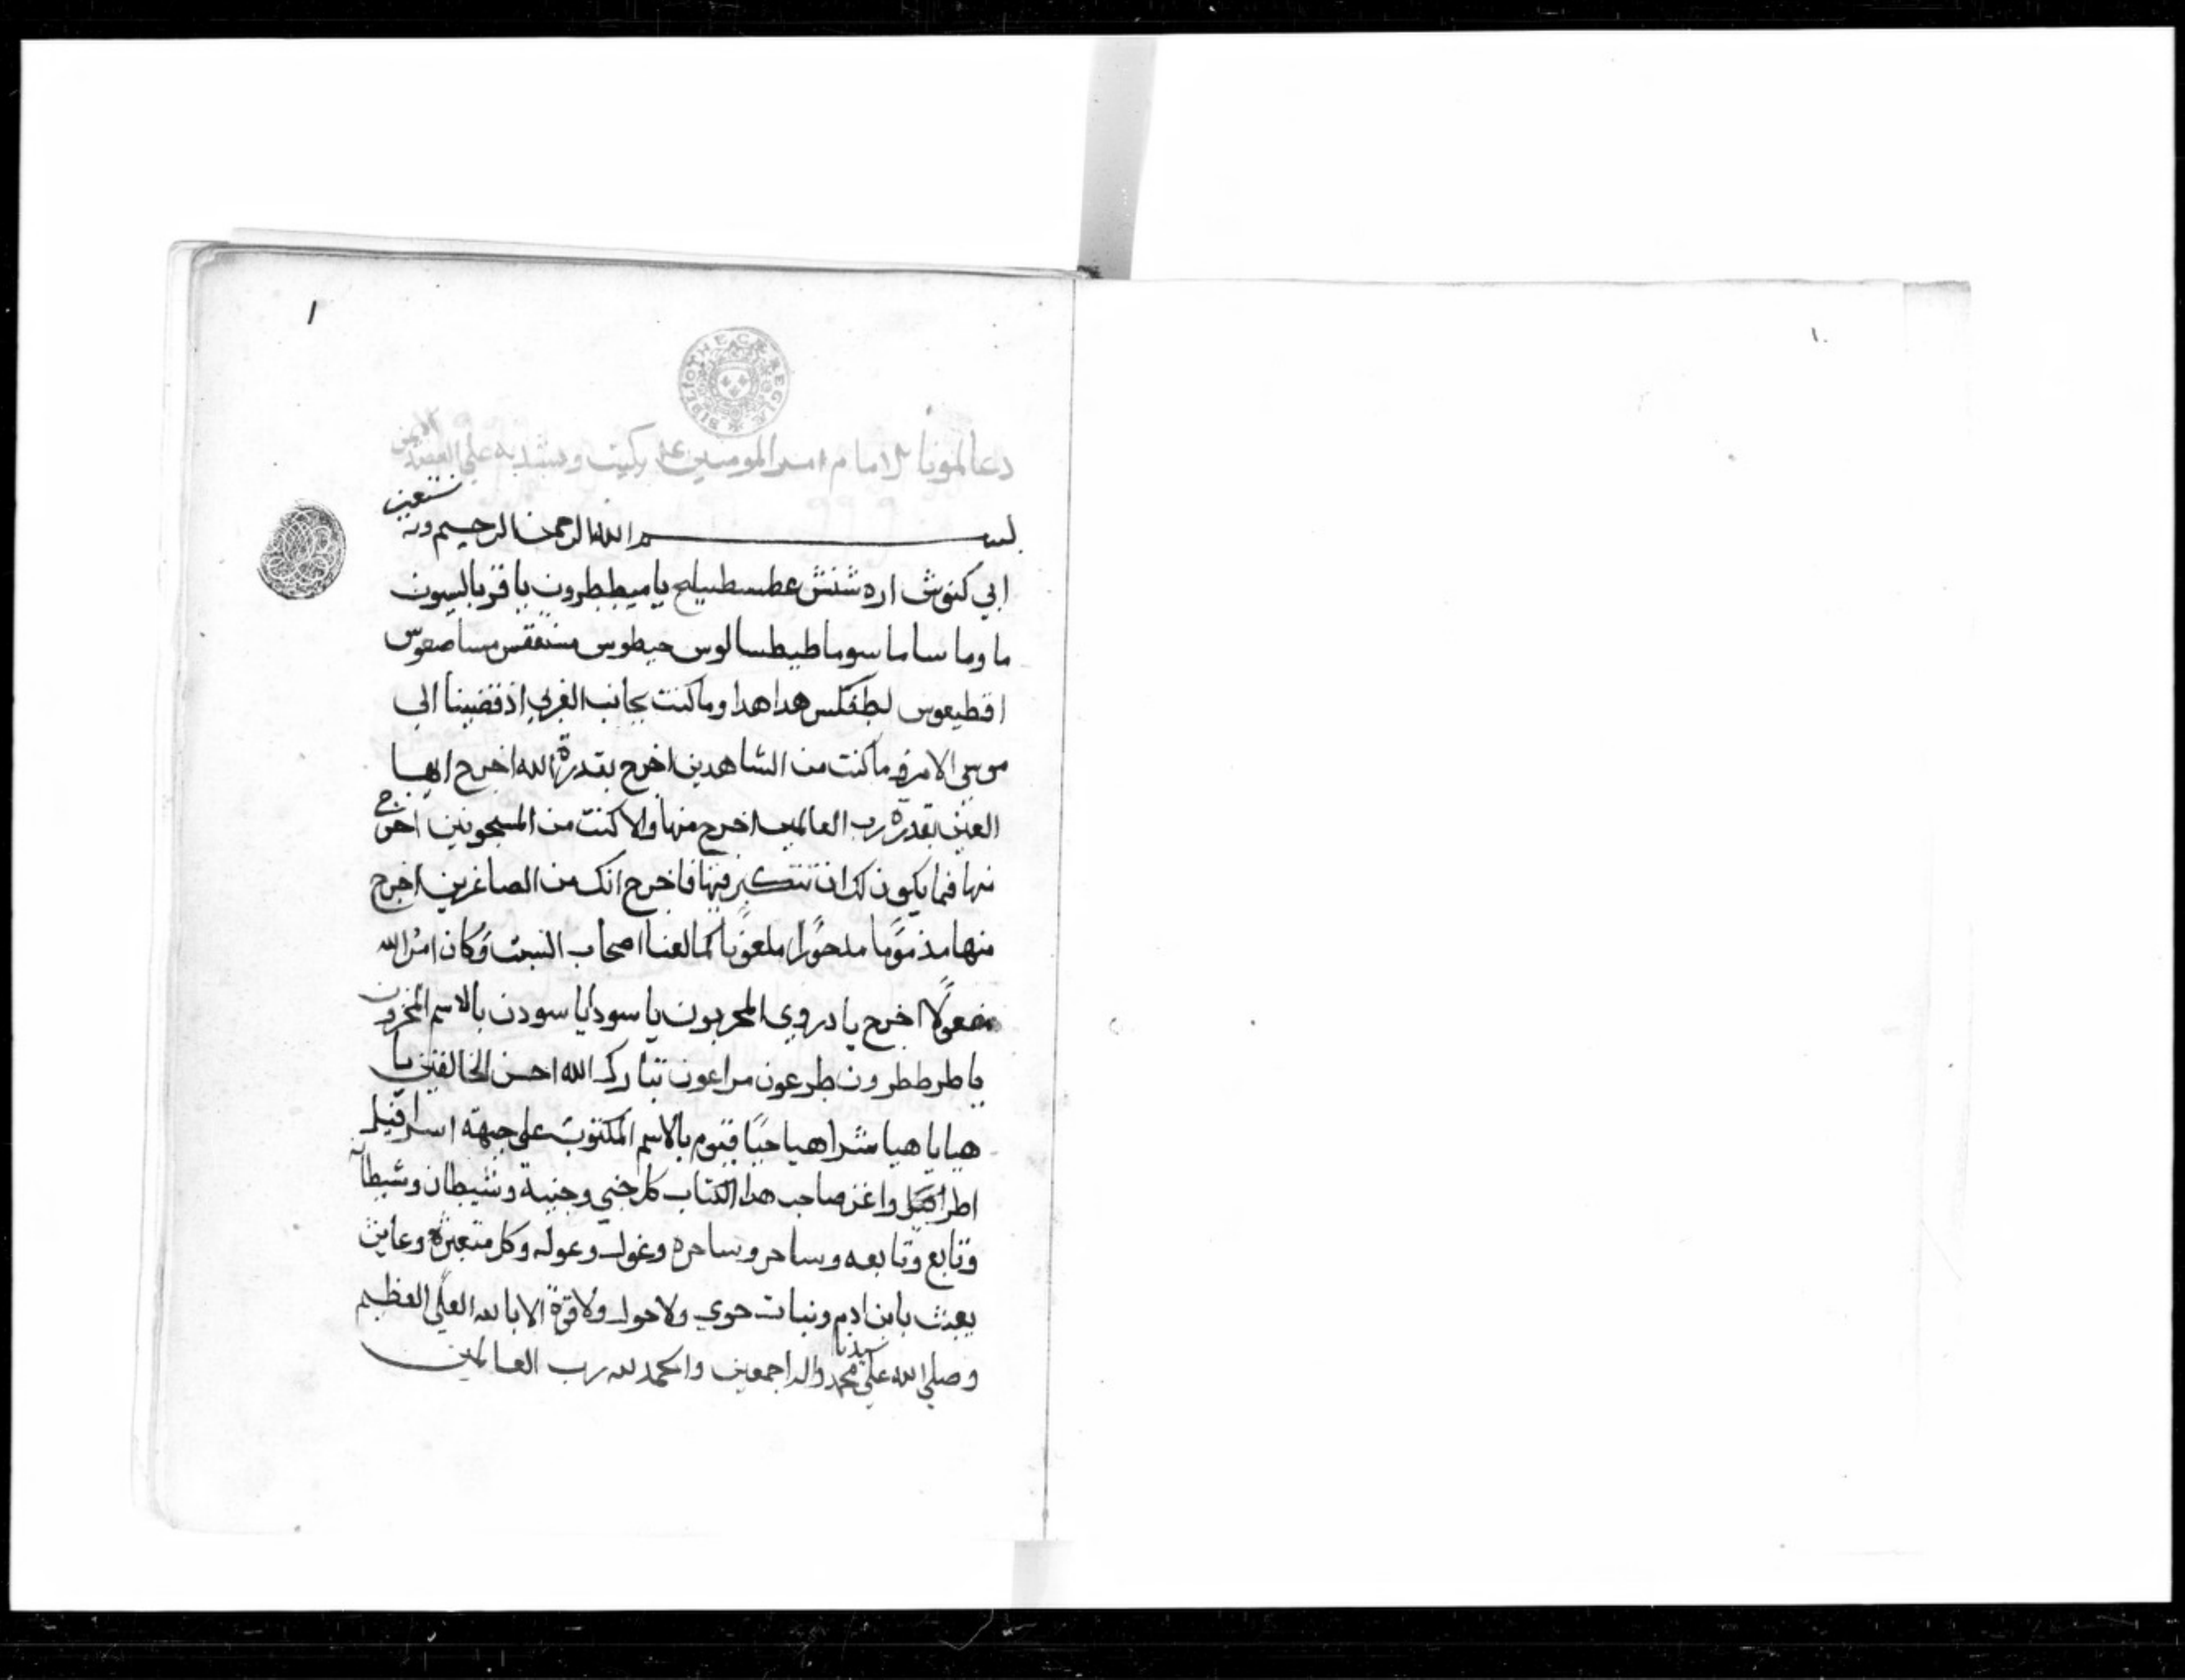 ١
BIBLIOTHECAE REGIAE
دعا الامام امير المومنين يكتب ويشد به علي العضد الايمن
بسم الله الرحمن الرحيم وبه نستعين
ابي كنوش اره شنش عطسطيلح يا ميططرون يا
ما وما ساما سوما طيطسالوس حيطوس
اقطيعوس هدا هدا وما كنت بجانب الغربي اذ قضينا الي
موسي الامر وما كنت من الشاهدين اخرج بقدرة الله اخرج ايها
العين بقدرة رب العالمين اخرج منها والا كنت من المسجونين اخرج
منها فما يكون لك ان تتكبر فيها فاخرج انك من الصاغرين اخرج
منها مذموما مدحورا ملعونا كما لعنا اصحاب السبت وكان امر الله
مفعولا اخرج يا دروي المحزون يا سودايا سودن بالاسم المخزون
يا طرططرون طرعون مراعون تبارك الله احسن الخالقين يا
هيا يا هيا شراهيا حيا قيوم بالاسم المكتوب علي جبهة اسرافيل
اطرد عن صاحب هدا الكتاب كل جني وجنية وشيطان وشيطانه
وتابع وتابعه وساحر وساحره وغول وغوله وكل متعبث وعابث
يعبث بابن ادم وبنات حوي ولا حول ولا قوة الا بالله العلي العظيم
وصلي الله علي سيدنا محمد واله اجمعين والحمد لله رب العالمين